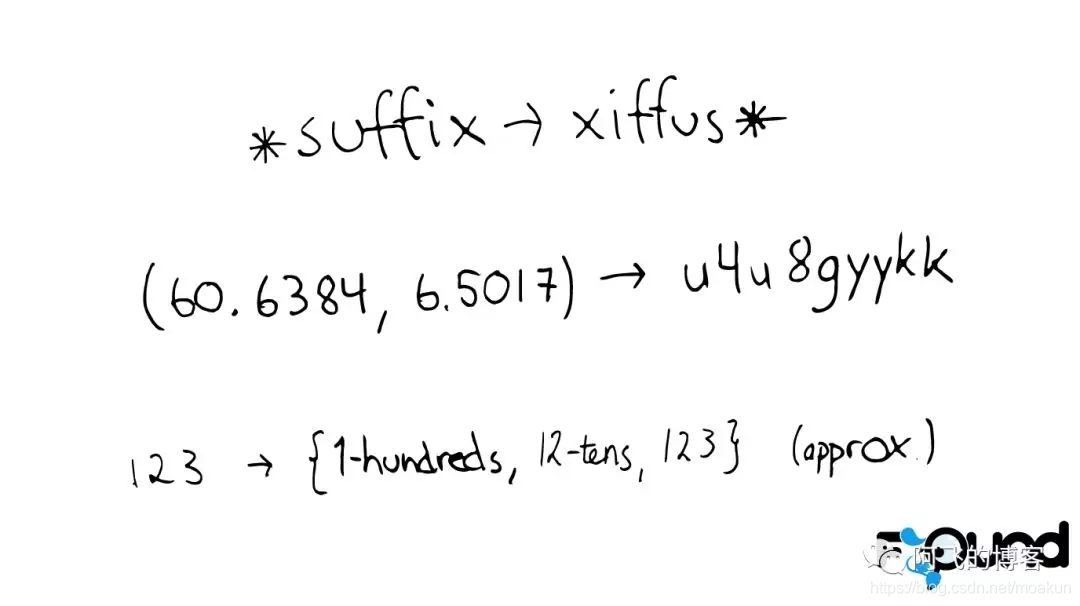 *suffix → xiffus*
(60.6384, 6.5017) → u4u8gyykk
123 → {1-hundreds, 12-tens, 123} (approx.)
found
阿飞的博客
https://blog.csdn.net/moakun